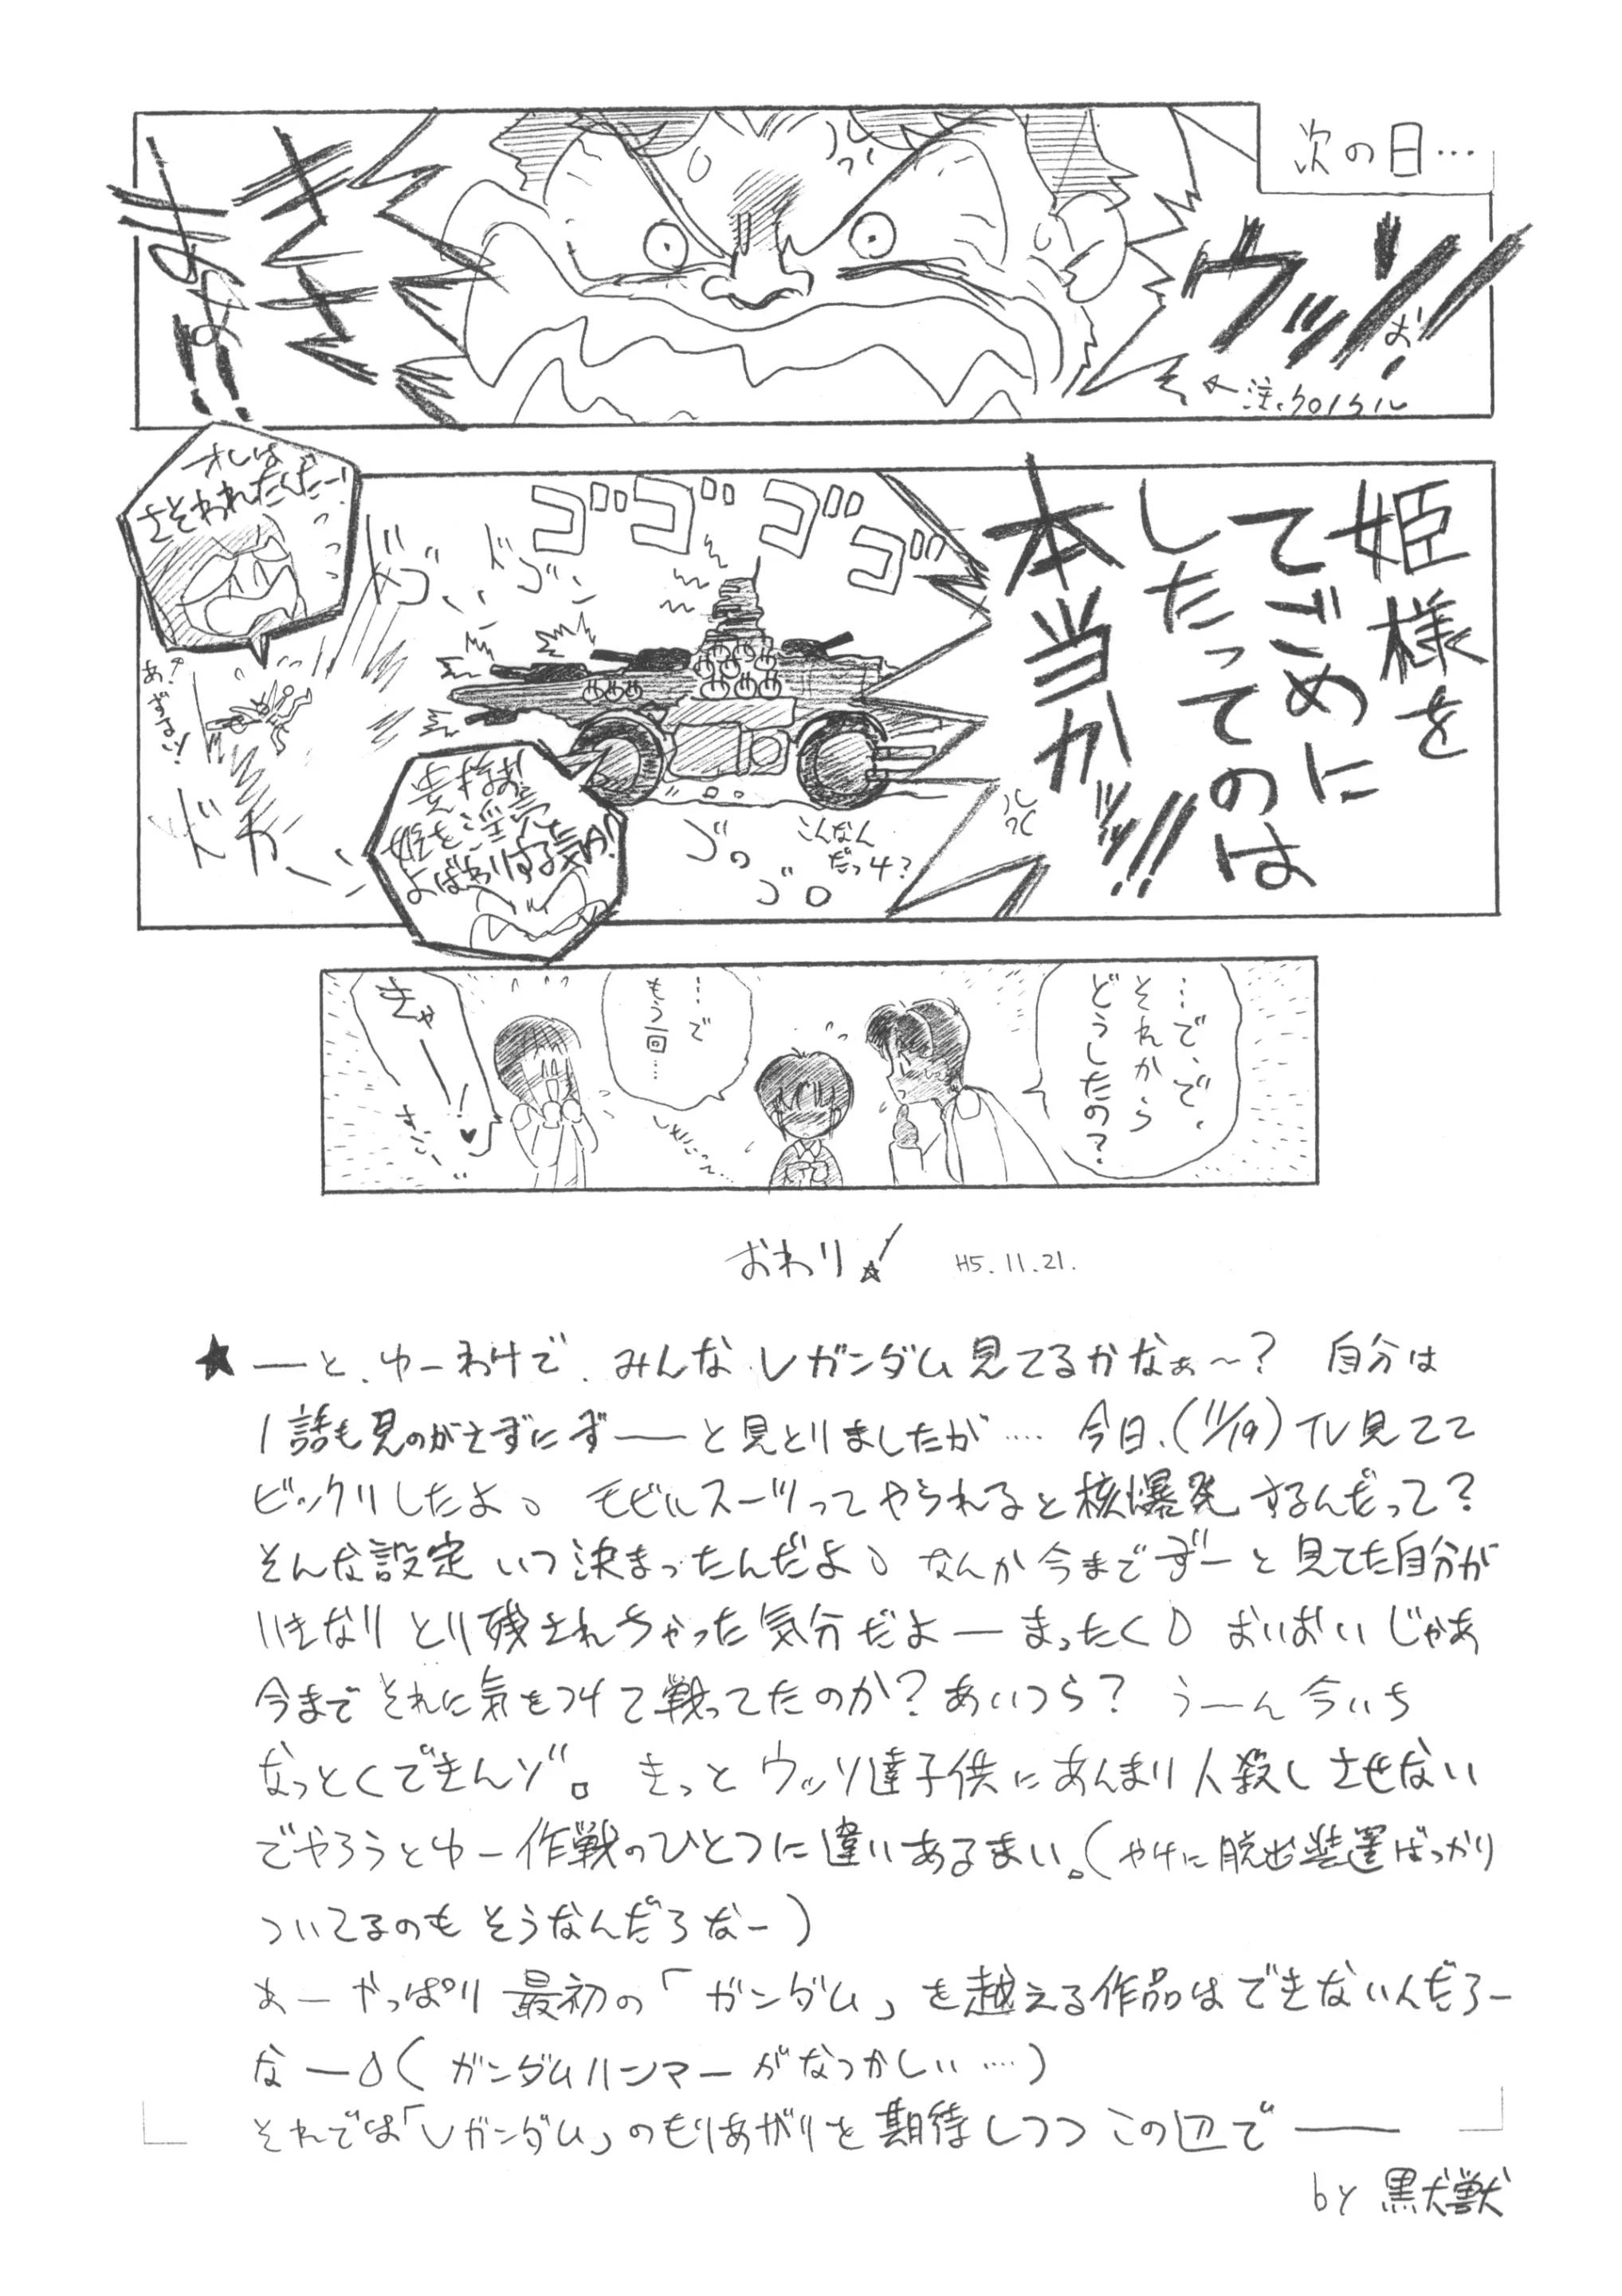 次の日…
ウッソ
お!
きさ
まぁ!!
注.クロノクル
姫様を
てごめに
したってのは
本当かッ!!
ゴゴゴゴ
オレは
さそわれたんだー!
ドゴ
ドゴ
あ!
ずさ!
ドカーン
貴様ぁ!
姫を淫売
よばわりする気か!
こんなん
だっけ?
ゴロ
ゴロ
…で、で、
それから
どうしたの?
…で
もう一回…
きゃー!♥
すごーい
おわり!
H5.11.21.
★ーと、ゆーわけで、みんなVガンダム見てるかなぁ〜? 自分は
1話も見のがさずにずーーと見とりましたが…. 今日、(11/19)TV見てて
ビックリしたよ。 モビルスーツってやられると核爆発するんだって?
そんな設定いつ決まったんだよ。なんか今までずーと見てた自分が
いきなりとり残されちゃった気分だよーまったく。おいおいじゃあ
今までそれに気をつけて戦ってたのか?あいつら? うーん今いち
なっとくできんゾ。 きっとウッソ達子供にあんまり人殺しさせない
でやろうとゆー作戦のひとつに違いあるまい。(やけに脱出装置ばっかり
ついてるのもそうなんだろなー)
あーやっぱり最初の「ガンダム」を越える作品はできないんだろー
なー(ガンダムハンマーがなつかしい….)
それでは「Vガンダム」のもりあがりを期待しつつこの辺でーー
by 黒犬獣